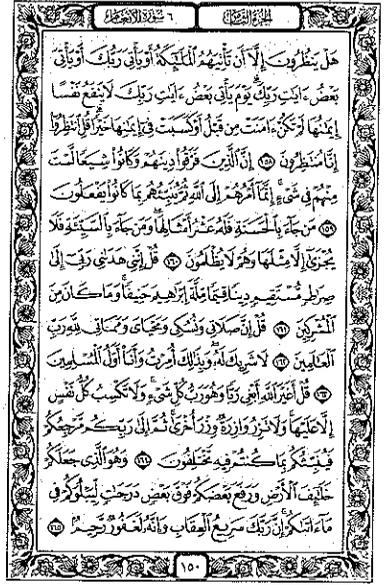 الجزء الثامن
٦ سورة الأنعام
هَلْ يَنظُرُونَ إِلَّآ أَن تَأْتِيَهُمُ ٱلْمَلَٰٓئِكَةُ أَوْ يَأْتِىَ رَبُّكَ أَوْ يَأْتِىَ
بَعْضُ ءَايَٰتِ رَبِّكَ ۗ يَوْمَ يَأْتِى بَعْضُ ءَايَٰتِ رَبِّكَ لَا يَنفَعُ نَفْسًا
إِيمَٰنُهَا لَمْ تَكُنْ ءَامَنَتْ مِن قَبْلُ أَوْ كَسَبَتْ فِىٓ إِيمَٰنِهَا خَيْرًا ۗ قُلِ ٱنتَظِرُوٓا۟
إِنَّا مُنتَظِرُونَ ١٥٨ إِنَّ ٱلَّذِينَ فَرَّقُوا۟ دِينَهُمْ وَكَانُوا۟ شِيَعًا لَّسْتَ
مِنْهُمْ فِى شَىْءٍ ۚ إِنَّمَآ أَمْرُهُمْ إِلَى ٱللَّهِ ثُمَّ يُنَبِّئُهُم بِمَا كَانُوا۟ يَفْعَلُونَ
١٥٩ مَن جَآءَ بِٱلْحَسَنَةِ فَلَهُۥ عَشْرُ أَمْثَالِهَا ۖ وَمَن جَآءَ بِٱلسَّيِّئَةِ فَلَا
يُجْزَىٰٓ إِلَّا مِثْلَهَا وَهُمْ لَا يُظْلَمُونَ ١٦٠ قُلْ إِنَّنِى هَدَىٰنِى رَبِّىٓ إِلَىٰ
صِرَٰطٍ مُّسْتَقِيمٍ دِينًا قِيَمًا مِّلَّةَ إِبْرَٰهِيمَ حَنِيفًا ۚ وَمَا كَانَ مِنَ
ٱلْمُشْرِكِينَ ١٦١ قُلْ إِنَّ صَلَاتِى وَنُسُكِى وَمَحْيَاىَ وَمَمَاتِى لِلَّهِ رَبِّ
ٱلْعَٰلَمِينَ ١٦٢ لَا شَرِيكَ لَهُۥ ۖ وَبِذَٰلِكَ أُمِرْتُ وَأَنَا۠ أَوَّلُ ٱلْمُسْلِمِينَ
١٦٣ قُلْ أَغَيْرَ ٱللَّهِ أَبْغِى رَبًّا وَهُوَ رَبُّ كُلِّ شَىْءٍ ۚ وَلَا تَكْسِبُ كُلُّ نَفْسٍ
إِلَّا عَلَيْهَا ۚ وَلَا تَزِرُ وَازِرَةٌ وِزْرَ أُخْرَىٰ ۚ ثُمَّ إِلَىٰ رَبِّكُم مَّرْجِعُكُمْ
فَيُنَبِّئُكُم بِمَا كُنتُمْ فِيهِ تَخْتَلِفُونَ ١٦٤ وَهُوَ ٱلَّذِى جَعَلَكُمْ
خَلَٰٓئِفَ ٱلْأَرْضِ وَرَفَعَ بَعْضَكُمْ فَوْقَ بَعْضٍ دَرَجَٰتٍ لِّيَبْلُوَكُمْ فِى
مَآ ءَاتَىٰكُمْ ۗ إِنَّ رَبَّكَ سَرِيعُ ٱلْعِقَابِ وَإِنَّهُۥ لَغَفُورٌ رَّحِيمٌۢ ١٦٥
١٥٠